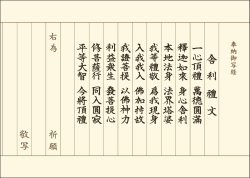 奉納御写経
舎利禮文
一心頂禮 萬徳圓満
釋迦如來 身心舎利
本地法身 法界塔婆
我等禮敬 為我現身
入我我入 佛加持故
我證菩提 以佛神力
利益衆生 發菩提心
修菩薩行 同入圓寂
平等大智 今將頂禮
右為 祈願
敬写